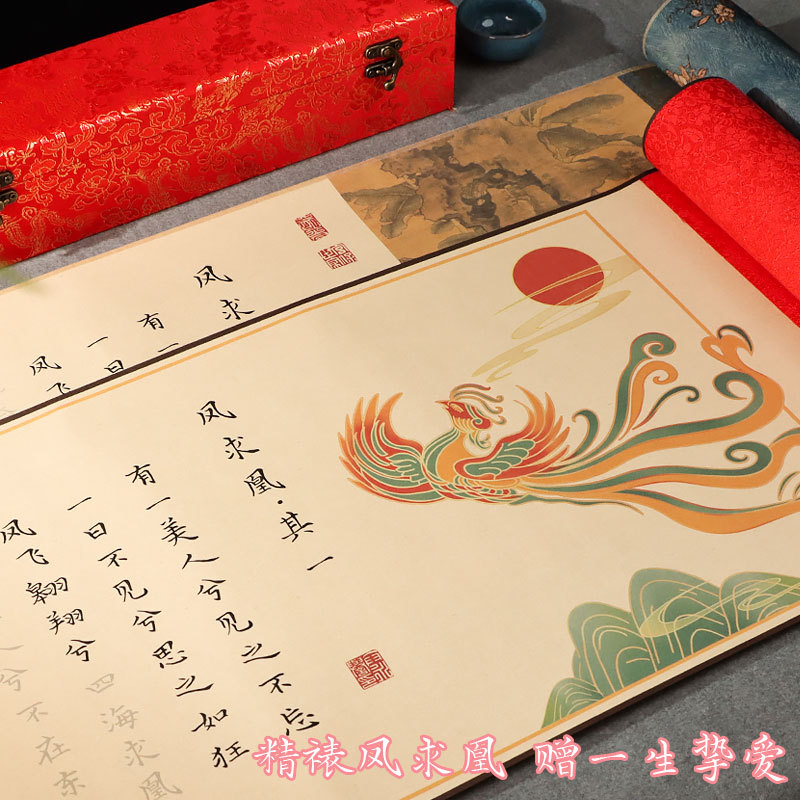 凤求
有一
一日
凤飞
凤求凰·其一
有一美人兮见之不忘
一日不见兮思之如狂
凤飞翱翔兮四海求凰
人兮不在东
精裱凤求凰 赠一生挚爱